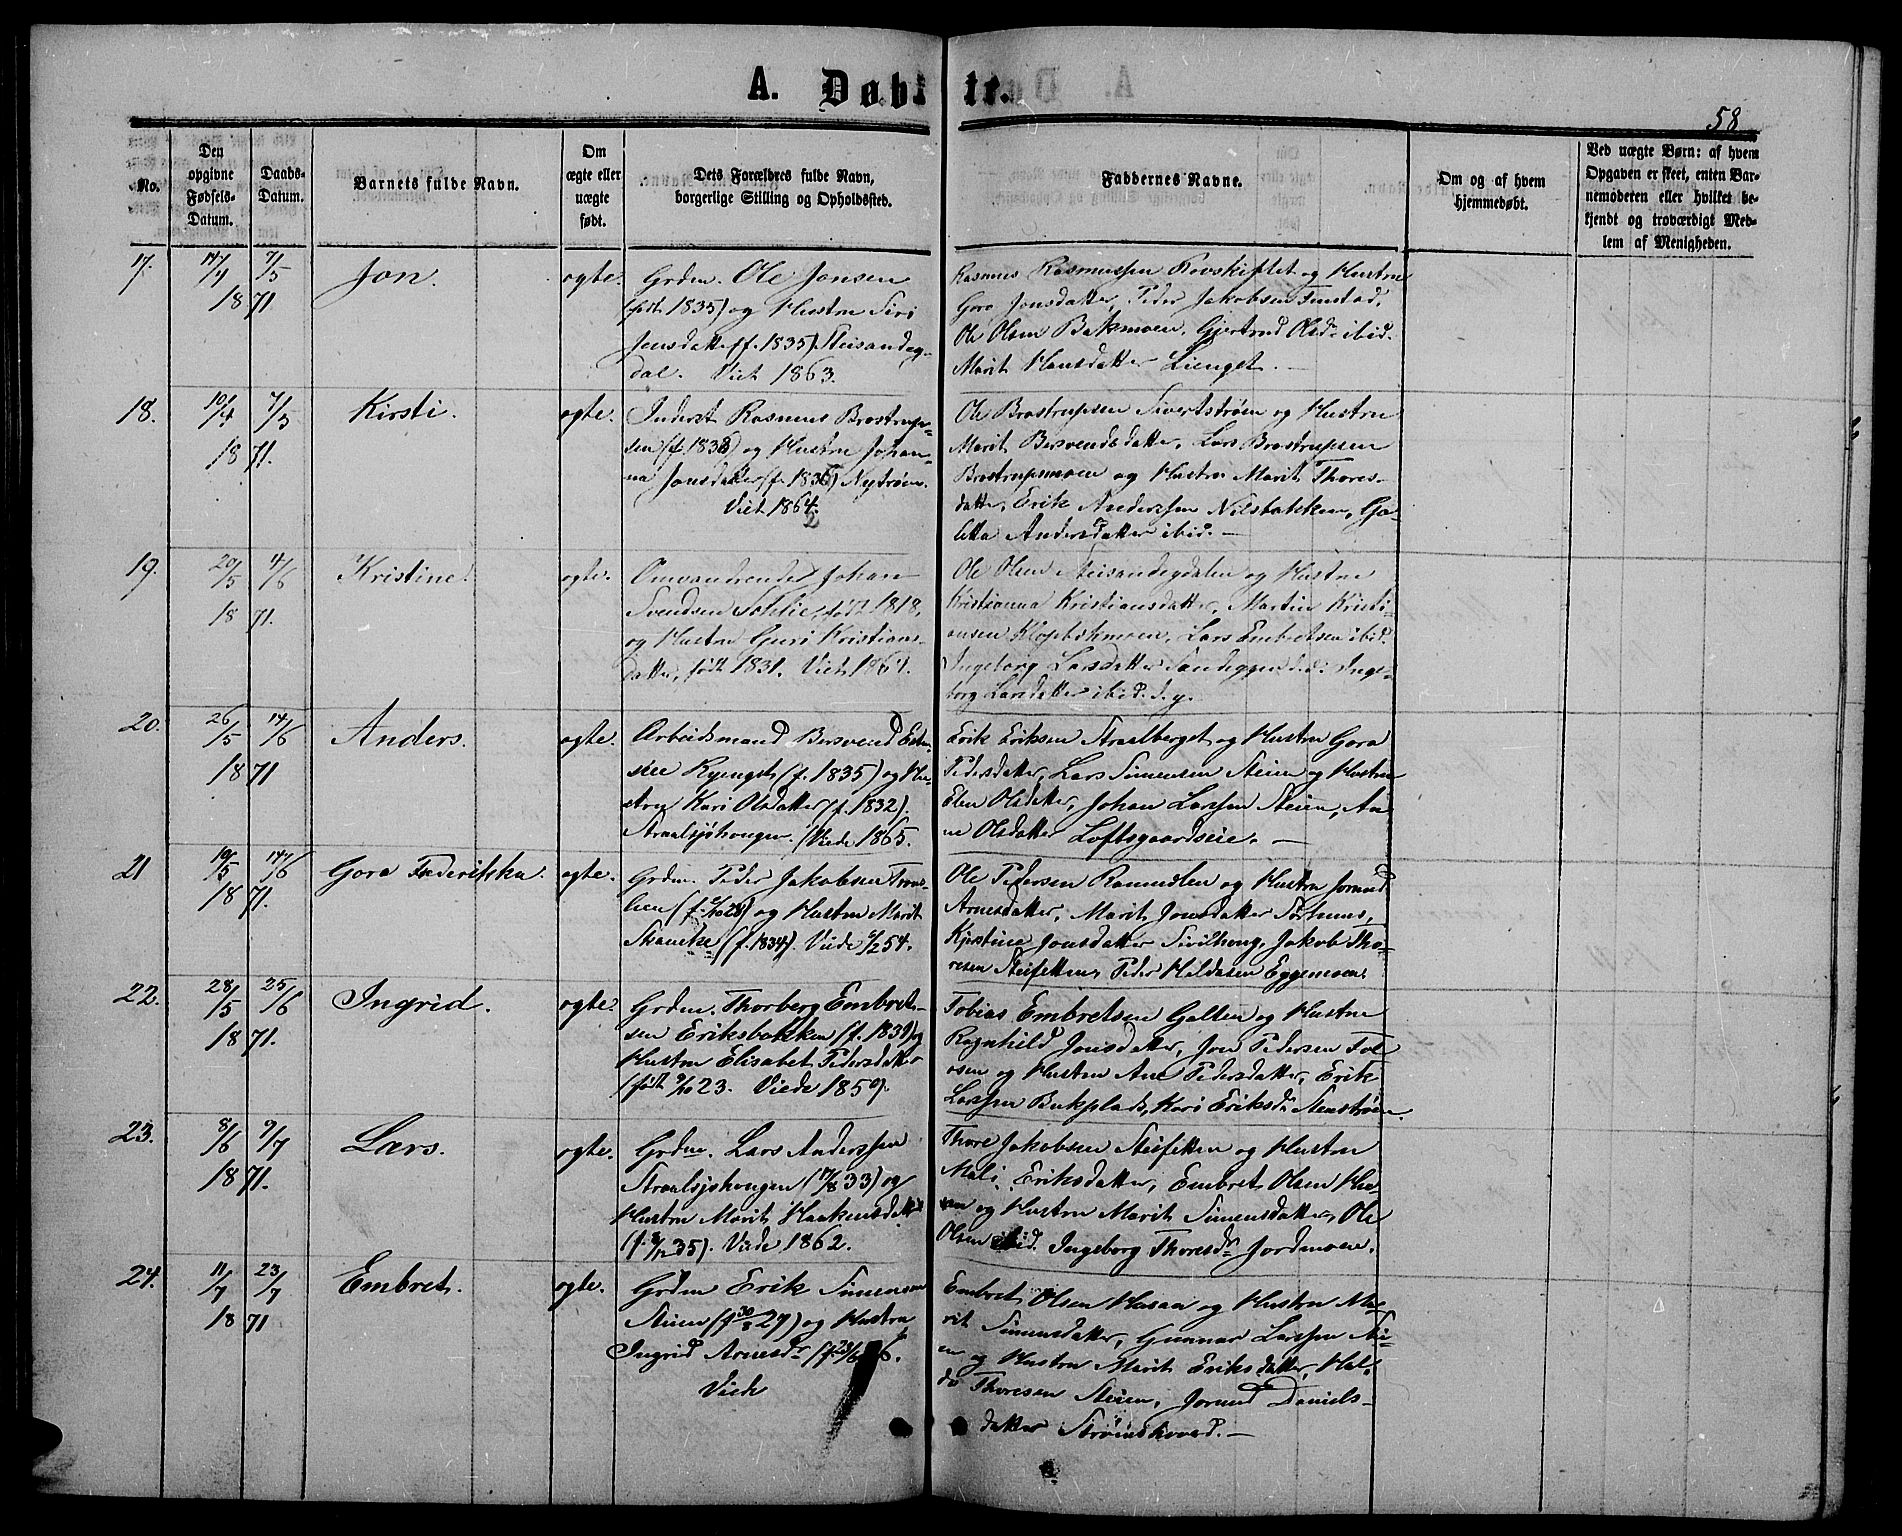 A. Døbte.
58
No.
Den opgivne Fødsels-Datum.
Daabs-Datum.
Barnets fulde Navn.
Om ægte eller uægte født.
Dets Forældres fulde Navn, borgerlige Stilling og Opholdssted.
Faddernes Navne.
Om og af hvem hjemmedøbt.
Ved uægte Børn: af hvem Opgaven er skeet, enten Barnemoderen eller hvilket bekjendt og troværdigt Medlem af Menigheden.
17. 17/4 7/5 1871. Jon. ogte.
Grdm. Ole Jonsen
(født 1835) og Hustru Siri
Jensdatter (f. 1835)
dal. Viet 1863.
Rasmus Rasmussen Rovskiftet og Hustru
Gora Jonsdatter, Peder Jakobsen Finstad,
Ole Olsen Bakmoen, Gjertrud Olsdr ibid.
Marit Hansdatter Lienget. —
18. 10/4 7/5 1871. Kirsti. ogte.
Inderst Rasmus Brostrup-
sen (f. 1838) og Hustru Johan-
na Jonsdatter (f. 1836) Nystrøen.
Viet 1864.
Ole Brostrupsen Sivertstrøen og Hustru
Marit Bersvendsdatter, Lars Brostrupsen
Brostrupsmoen og Hustru Marit Thores-
datter, Erik Anderssen Nilsbakken, Go-
litta Andersdatter ibid. —
19. 20/5 4/6 1871. Kristine. ogte.
Omvandrende Johan
Svendsen Solilie, født 1818,
og Hustru Guri Kristians-
datter, født 1831. Viet 1861.
Ole Olsen og Hustru
Kristianna Kristiansdatter, Martin Kristi-
ansen Kloptskmoen, Lars Embretsen ibid.
Ingeborg Larsdatter Sandeggen Inge-
borg Larsdatter ibid. d. y.
20. 26/5 14/6 1871 Anders. ogte.
Arbeidsmand Bersvend Esten-
sen Ryenget (f. 1835) og Hu-
stru Kari Olsdatter (f. 1832).
Straalsjøhougen. (Viede 1865.
Erik Eriksen Straalberget og Hustru Gora
Pedersdatter, Lars Simensen Steien og Hustru
Elen Olsdatter, Johan Larssen Steien, An-
ne Olsdatter Loftsgaardseie. —
21 19/5 14/6 1871. Gora Frederikka. ogte.
Grdm. Peder Jakobsen Trons-
lien og Hustru Marit
(f. 1834). Viede 6/2 54.
Ole Pedersen Ramndlen og Hustru Jorund
Arnesdatter, Marit Jonsdatter Sørhuus,
Kjerstine Jonsdatter Sivilhoug, Jakob Tho-
resen Steifetten, Peder Haldosen Eggemoen.
22. 28/5 25/6 1871. Ingrid. ogte.
Grdm. Thorberg Embret-
sen Eriksbakken (f. 1839) og
Hustru Elisabet Pedersdatter
(født 9/10 23. Viede 1859.
Tobias Embretsen Galten og Hustru
Ragnhild Jonsdatter, Jon Pedersen Fol-
osen og Hustru Ane Pedersdatter, Erik
Larssen Bakplads, Kari Eriksdr Stenstrøen.
23. 8/6 9/7 1871. Lars. ogte.
Grdm. Lars Anderssen
Straalsjøhougen (17/8 33) og
Hustru Marit Haakensdatter
(f. 8/12 35). Viede 1862.
Thore Jakobsen Steifetten og Hustru
Mali Eriksdatter, Embret Olsen Hu-
saa og Hustru Marit Simensdatter, Ole
Olsen ibid. Ingeborg Thoresdr Jordmoen.
24. 11/7 23/7 1871 Embret. ogte.
Grdm Erik Simensen
Steien (f 30/8 27) og Hustru
Ingrid Arnesdr
Viede
Embret Olsen Husaa og Hustru Ma-
rit Simensdatter, Gunnar Larssen Stei-
en og Hustru Marit Eriksdatter, Hal-
do Thoresen Steien, Jorund Daniels-
datter Strømskoved. —